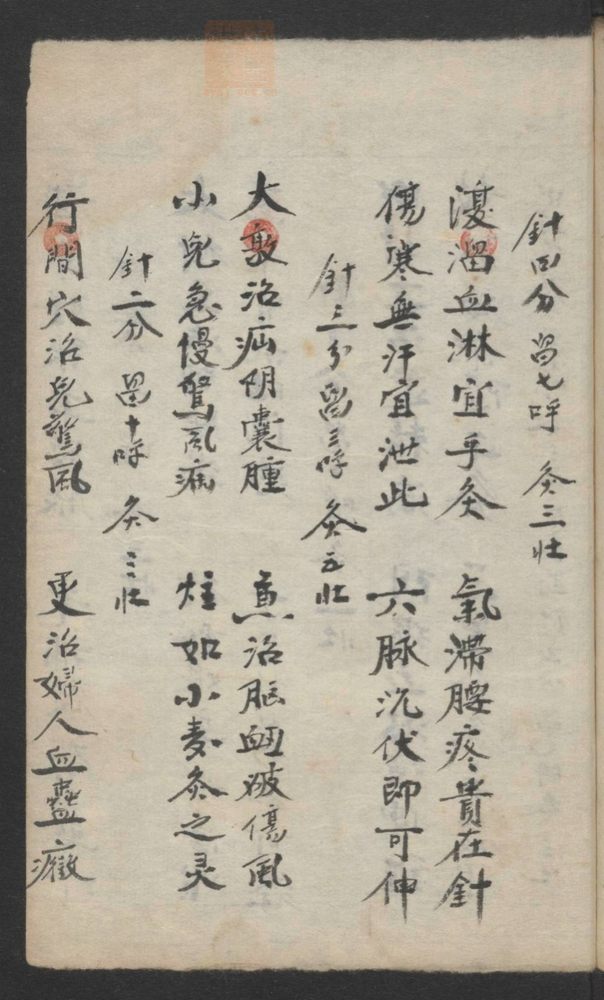 針四分 畄七呼 灸三壮
溲溜血淋宜乎灸 氣滞腰疼貴在針
傷寒無汗宜泄此 六脉沉伏即可伸
針三分 畄三呼 灸五壮
大敦治疝阴囊腫 烝治脳衄破傷風
小児急慢驚風病 炷如小麦灸之灵
針二分 畄十呼 灸三壮
行間穴治児驚風 更治婦人血蠱癥